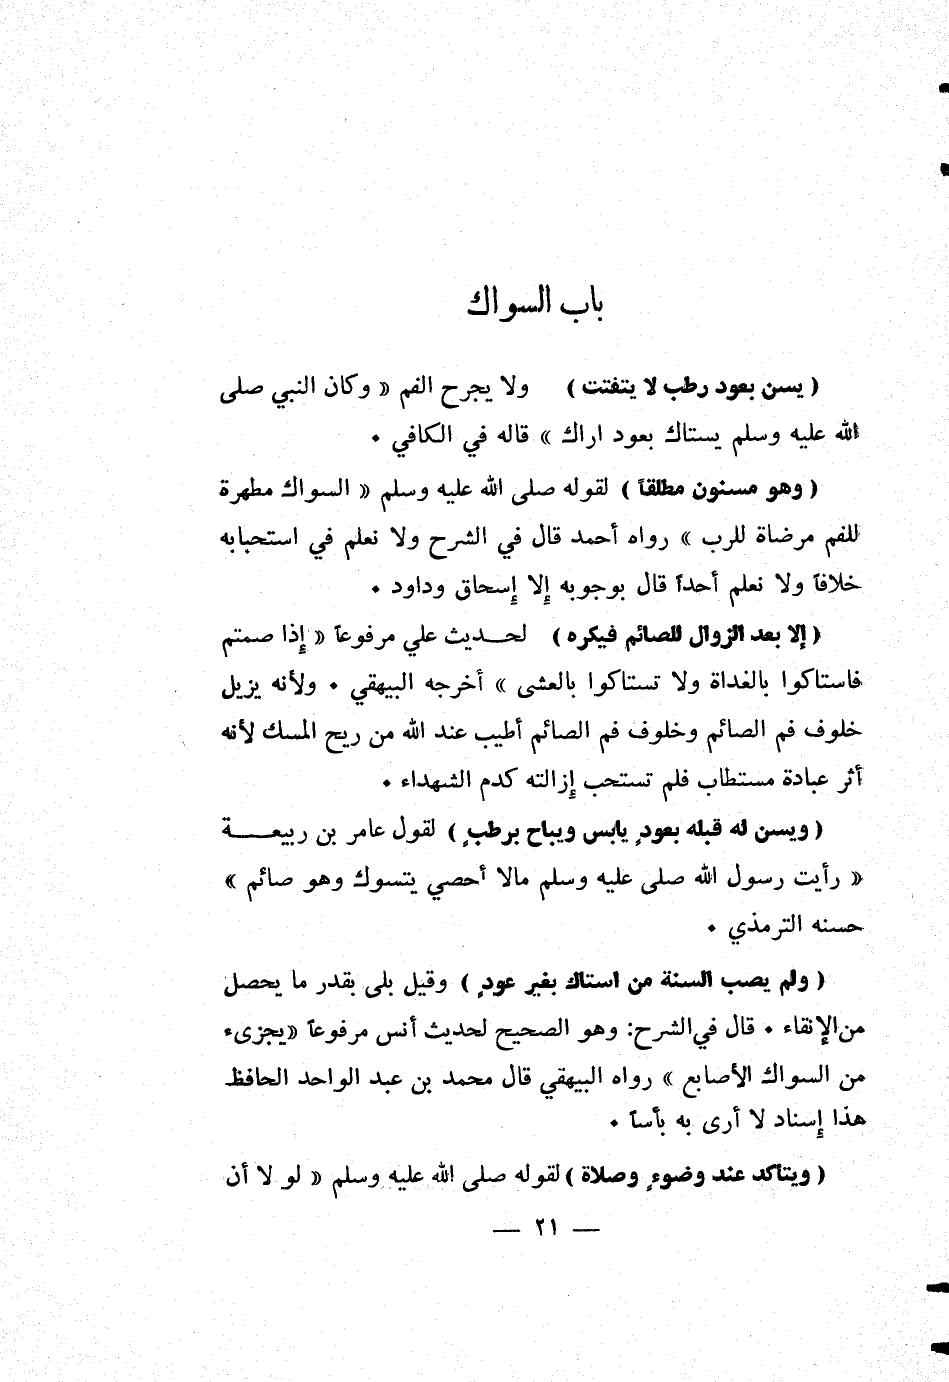 باب السواك
( يسن بعود رطب لا يتفتت ) ولا يجرح الفم « وكان النبي صلى
الله عليه وسلم يستاك بعود اراك » قاله في الكافي .
( وهو مسنون مطلقاً ) لقوله صلى الله عليه وسلم « السواك مطهرة
للفم مرضاة للرب » رواه أحمد قال في الشرح ولا نعلم في استحبابه
خلافاً ولا نعلم أحداً قال بوجوبه إلا إسحاق وداود .
( إلا بعد الزوال للصائم فيكره ) لحديث علي مرفوعاً « إذا صمتم
فاستاكوا بالغداة ولا تستاكوا بالعشى » أخرجه البيهقي . ولأنه يزيل
خلوف فم الصائم وخلوف فم الصائم أطيب عند الله من ريح المسك لأنه
أثر عبادة مستطاب فلم تستحب إزالته كدم الشهداء .
( ويسن له قبله بعودٍ يابس ويباح برطبٍ ) لقول عامر بن ربيعة
« رأيت رسول الله صلى عليه وسلم مالا أحصي يتسوك وهو صائم »
حسنه الترمذي .
( ولم يصب السنة من استاك بغير عودٍ ) وقيل بلى بقدر ما يحصل
من الإنقاء . قال في الشرح: وهو الصحيح لحديث أنس مرفوعاً «يجزىء
من السواك الأصابع » رواه البيهقي قال محمد بن عبد الواحد الحافظ
هذا إسناد لا أرى به بأساً .
( ويتاكد عند وضوءٍ وصلاة ) لقوله صلى الله عليه وسلم « لو لا أن
— ٢١ —